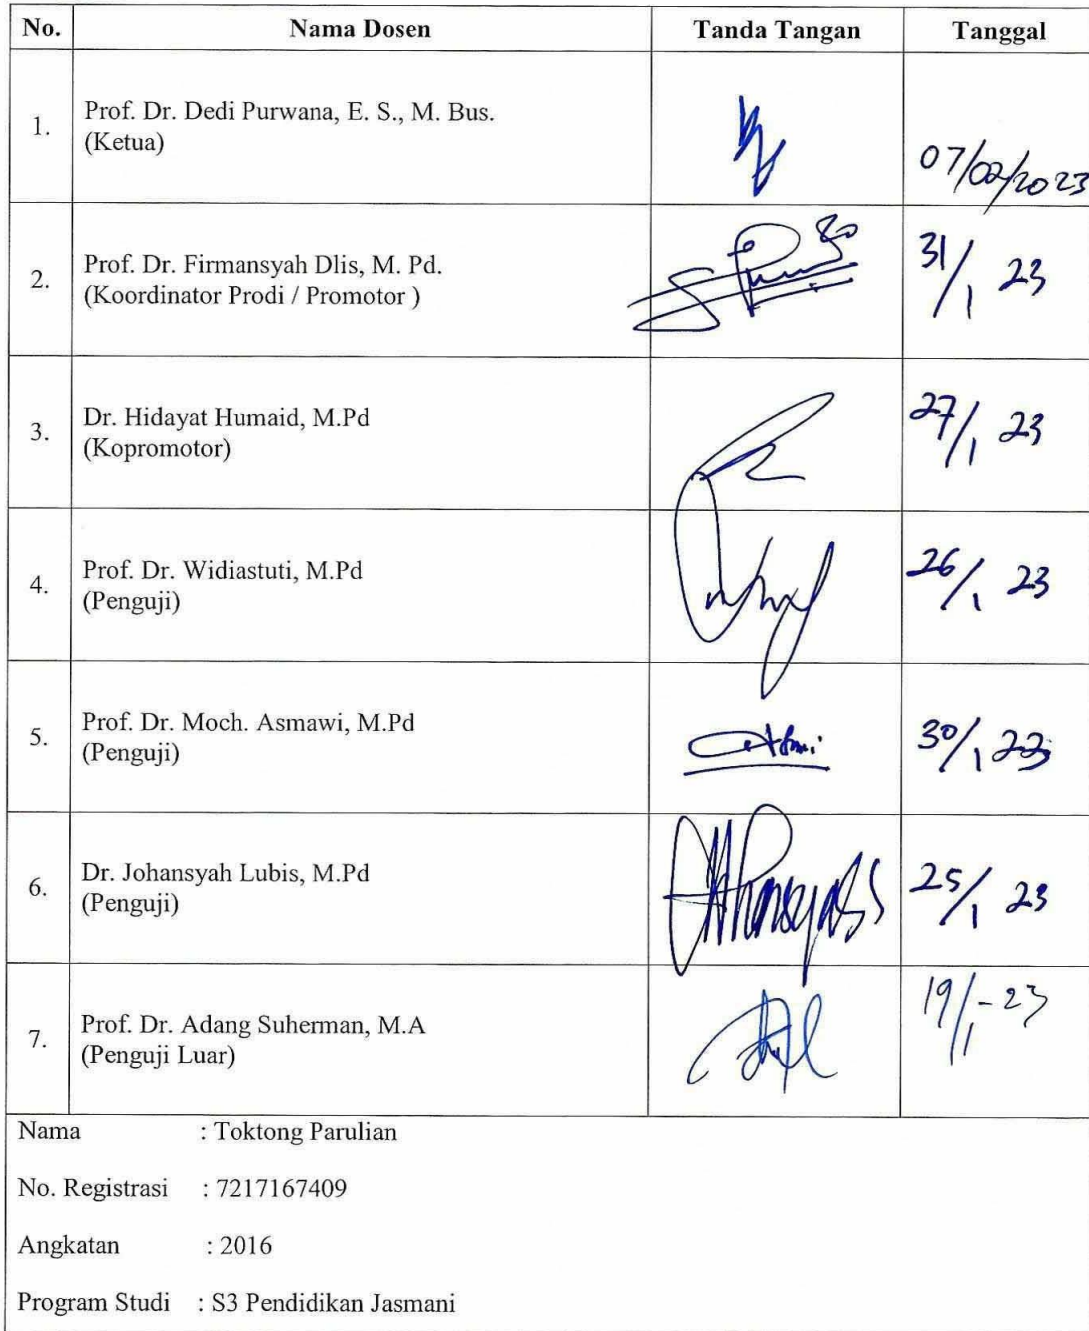 No. Nama Dosen Tanda Tangan Tanggal
1. Prof. Dr. Dedi Purwana, E. S., M. Bus.
(Ketua)
07/02/2023
2. Prof. Dr. Firmansyah Dlis, M. Pd.
(Koordinator Prodi / Promotor )
31/1 23
3. Dr. Hidayat Humaid, M.Pd
(Kopromotor)
27/1 23
4. Prof. Dr. Widiastuti, M.Pd
(Penguji)
26/1 23
5. Prof. Dr. Moch. Asmawi, M.Pd
(Penguji)
30/1 23
6. Dr. Johansyah Lubis, M.Pd
(Penguji)
25/1 23
7. Prof. Dr. Adang Suherman, M.A
(Penguji Luar)
19/1-23
Nama : Toktong Parulian
No. Registrasi : 7217167409
Angkatan : 2016
Program Studi : S3 Pendidikan Jasmani